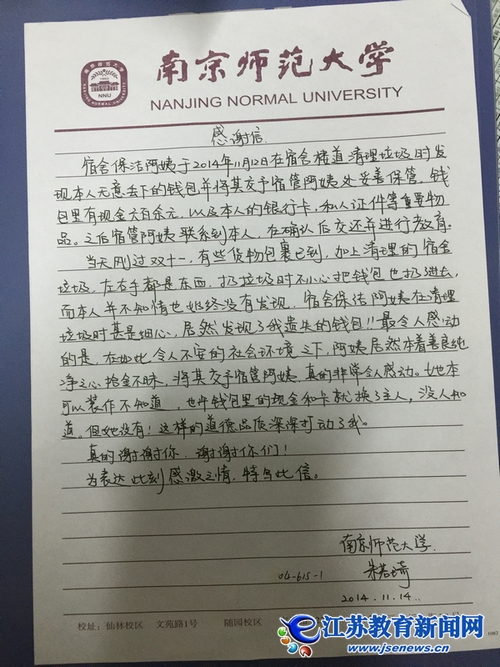 南京师范大学
NANJING NORMAL UNIVERSITY
NNU
感谢信
宿舍保洁阿姨于2014年11月12日在宿舍楼道清理垃圾时发
现本人无意丢下的钱包并将其交予宿管阿姨处妥善保管，钱
包里有现金六百余元，以及本人的银行卡，和人证件等重要物
品。之后宿管阿姨联系到本人，在确认后交还并进行教育。
当天刚过双十一，有些货物包裹已到，加上清理的宿舍
垃圾，左右手都是东西，扔垃圾时不小心把钱包也扔进去，
而本人并不知情也始终没有发现，宿舍保洁阿姨在清理
垃圾时甚是细心，居然发现了我遗失的钱包！！最令人感动
的是，在如此令人不安的社会环境之下，阿姨居然本着善良纯
净之心，拾金不昧，将其交予宿管阿姨，真的非常令人感动。她本
可以装作不知道，也许钱包里的现金和卡就换了主人，没人知
道。但她没有！这样的道德品质深深打动了我。
真的谢谢谢你，谢谢谢你们！
为表达此刻感激之情，特书此信。
南京师范大学
04-615-1
2014.11.14
校址：仙林校区 文苑路1号 随园校区
江苏教育新闻网
www.jsenews.com